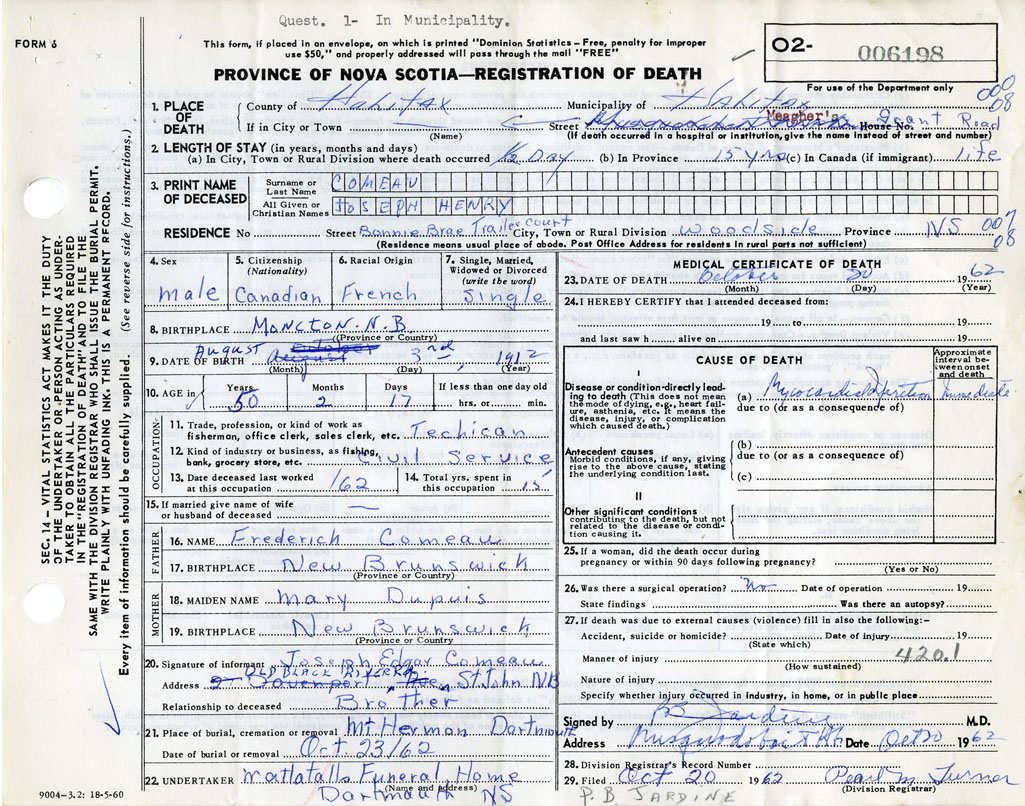 Quest. 1- In Municipality.
FORM 6
This form, if placed in an envelope, on which is printed "Dominion Statistics – Free, penalty for improper
use $50," and properly addressed will pass through the mail "FREE"
O2- 006198
For use of the Department only
PROVINCE OF NOVA SCOTIA—REGISTRATION OF DEATH
008
08
1. PLACE OF DEATH
County of Halifax Municipality of Halifax
If in City or Town Street Meagher's Grant Road House No.
(Name) (If death occurred in a hospital or institution, give the name instead of street and number)
2. LENGTH OF STAY (in years, months and days)
(a) In City, Town or Rural Division where death occurred 1/2 Day (b) In Province 15 yrs (c) In Canada (if immigrant) life
3. PRINT NAME OF DECEASED
Surname or Last Name COMEAU
All Given or Christian Names JOSEPH HENRY
RESIDENCE No Street Bonnie Brae Trailer Court City, Town or Rural Division Woodside Province NS
007
08
(Residence means usual place of abode. Post Office Address for residents in rural parts not sufficient)
4. Sex 5. Citizenship (Nationality) 6. Racial Origin 7. Single, Married, Widowed or Divorced (write the word)
Male Canadian French Single
8. BIRTHPLACE Moncton. N.B
(Province or Country)
9. DATE OF BIRTH August 3rd, 1912
(Month) (Day) (Year)
10. AGE in Years Months Days If less than one day old
50 2 17 hrs. or min.
OCCUPATION
11. Trade, profession, or kind of work as
fisherman, office clerk, sales clerk, etc. Techican
12. Kind of industry or business, as fishing,
bank, grocery store, etc. Civil Service
13. Date deceased last worked at this occupation /62 14. Total yrs. spent in this occupation 15
15. If married give name of wife
or husband of deceased —
FATHER
16. NAME Frederich Comeau
17. BIRTHPLACE New Brunswick
(Province or Country)
MOTHER
18. MAIDEN NAME Mary Dupuis
19. BIRTHPLACE New Brunswick
(Province or Country)
20. Signature of informant Joseph Edgar Comeau
Address OLD BLACK RIVER RD St John NB
Relationship to deceased Brother
21. Place of burial, cremation or removal Mt Herman Dartmouth
Date of burial or removal Oct 23/62
22. UNDERTAKER Mattatalls Funeral Home
(Name and address)
Dartmouth NS
9004-3.2: 18-5-60
MEDICAL CERTIFICATE OF DEATH
23. DATE OF DEATH October 20 1962
(Month) (Day) (Year)
24. I HEREBY CERTIFY that I attended deceased from:
19 to 19
and last saw h alive on 19
CAUSE OF DEATH
Approximate interval between onset and death
I
Disease or condition directly leading to death (This does not mean the mode of dying, e.g., heart failure, asthenia, etc. It means the disease, injury, or complication which caused death.)
(a) Myocardial Infarction Immediate
due to (or as a consequence of)
Antecedent causes
Morbid conditions, if any, giving rise to the above cause, stating the underlying condition last.
(b)
due to (or as a consequence of)
(c)
II
Other significant conditions
contributing to the death, but not related to the disease or condition causing it.
25. If a woman, did the death occur during
pregnancy or within 90 days following pregnancy?
(Yes or No)
26. Was there a surgical operation? No Date of operation 19
State findings Was there an autopsy?
27. If death was due to external causes (violence) fill in also the following:-
Accident, suicide or homicide? Date of injury 19
(State which)
Manner of injury 420.1
(How sustained)
Nature of injury
Specify whether injury occurred in industry, in home, or in public place
Signed by PB Jardine M.D.
Address Musquodoboit Hbr Date Oct 20 1962
28. Division Registrar's Record Number
29. Filed Oct 20 1962 Pearl M Turner
(Division Registrar)
P. B. JARDINE
SEC. 14 – VITAL STATISTICS ACT MAKES IT THE DUTY
OF THE UNDERTAKER OR PERSON ACTING AS UNDER-
TAKER TO OBTAIN ALL THE PARTICULARS REQUIRED
IN THE "REGISTRATION OF DEATH" AND TO FILE THE
SAME WITH THE DIVISION REGISTRAR WHO SHALL ISSUE THE BURIAL PERMIT.
WRITE PLAINLY WITH UNFADING INK. THIS IS A PERMANENT RECORD.
Every item of information should be carefully supplied. (See reverse side for instructions.)